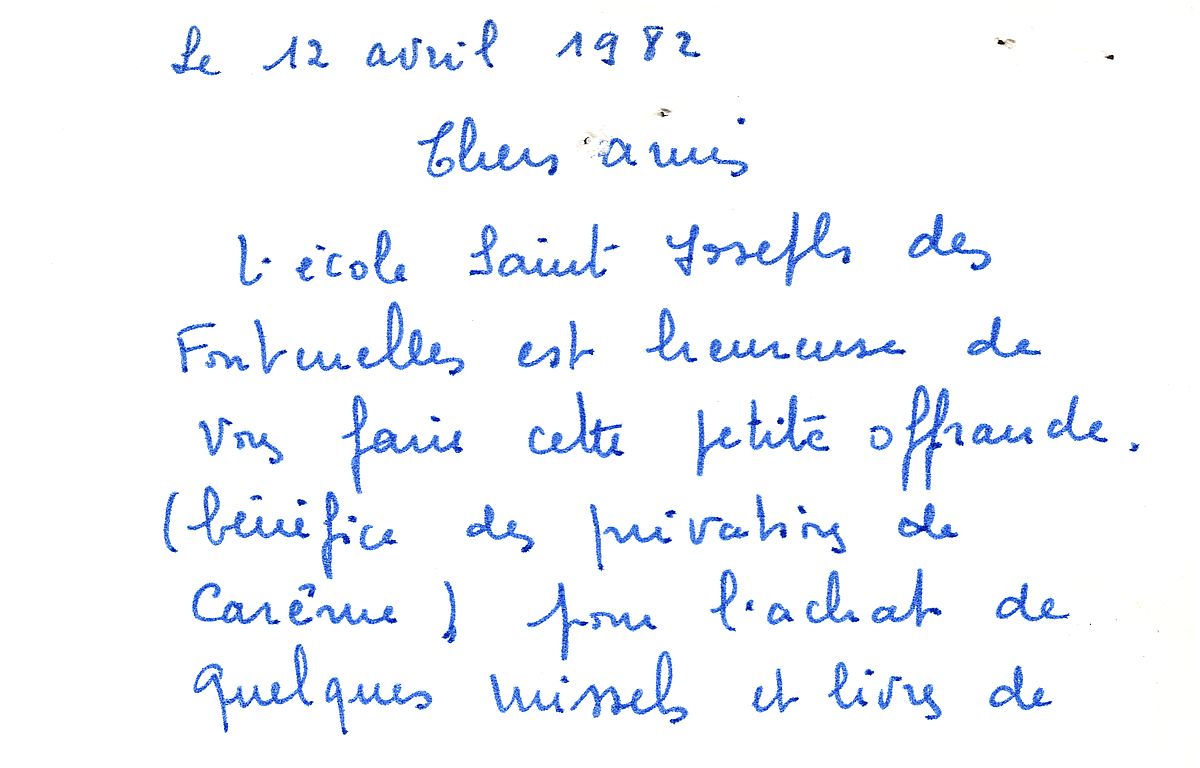 Le 12 avril 1982
Chers amis
L'école Saint Joseph des
Fontenelles est heureuse de
vous faire cette petite offrande.
(bénéfice des privations de
Carême) pour l'achat de
quelques missels et livres de